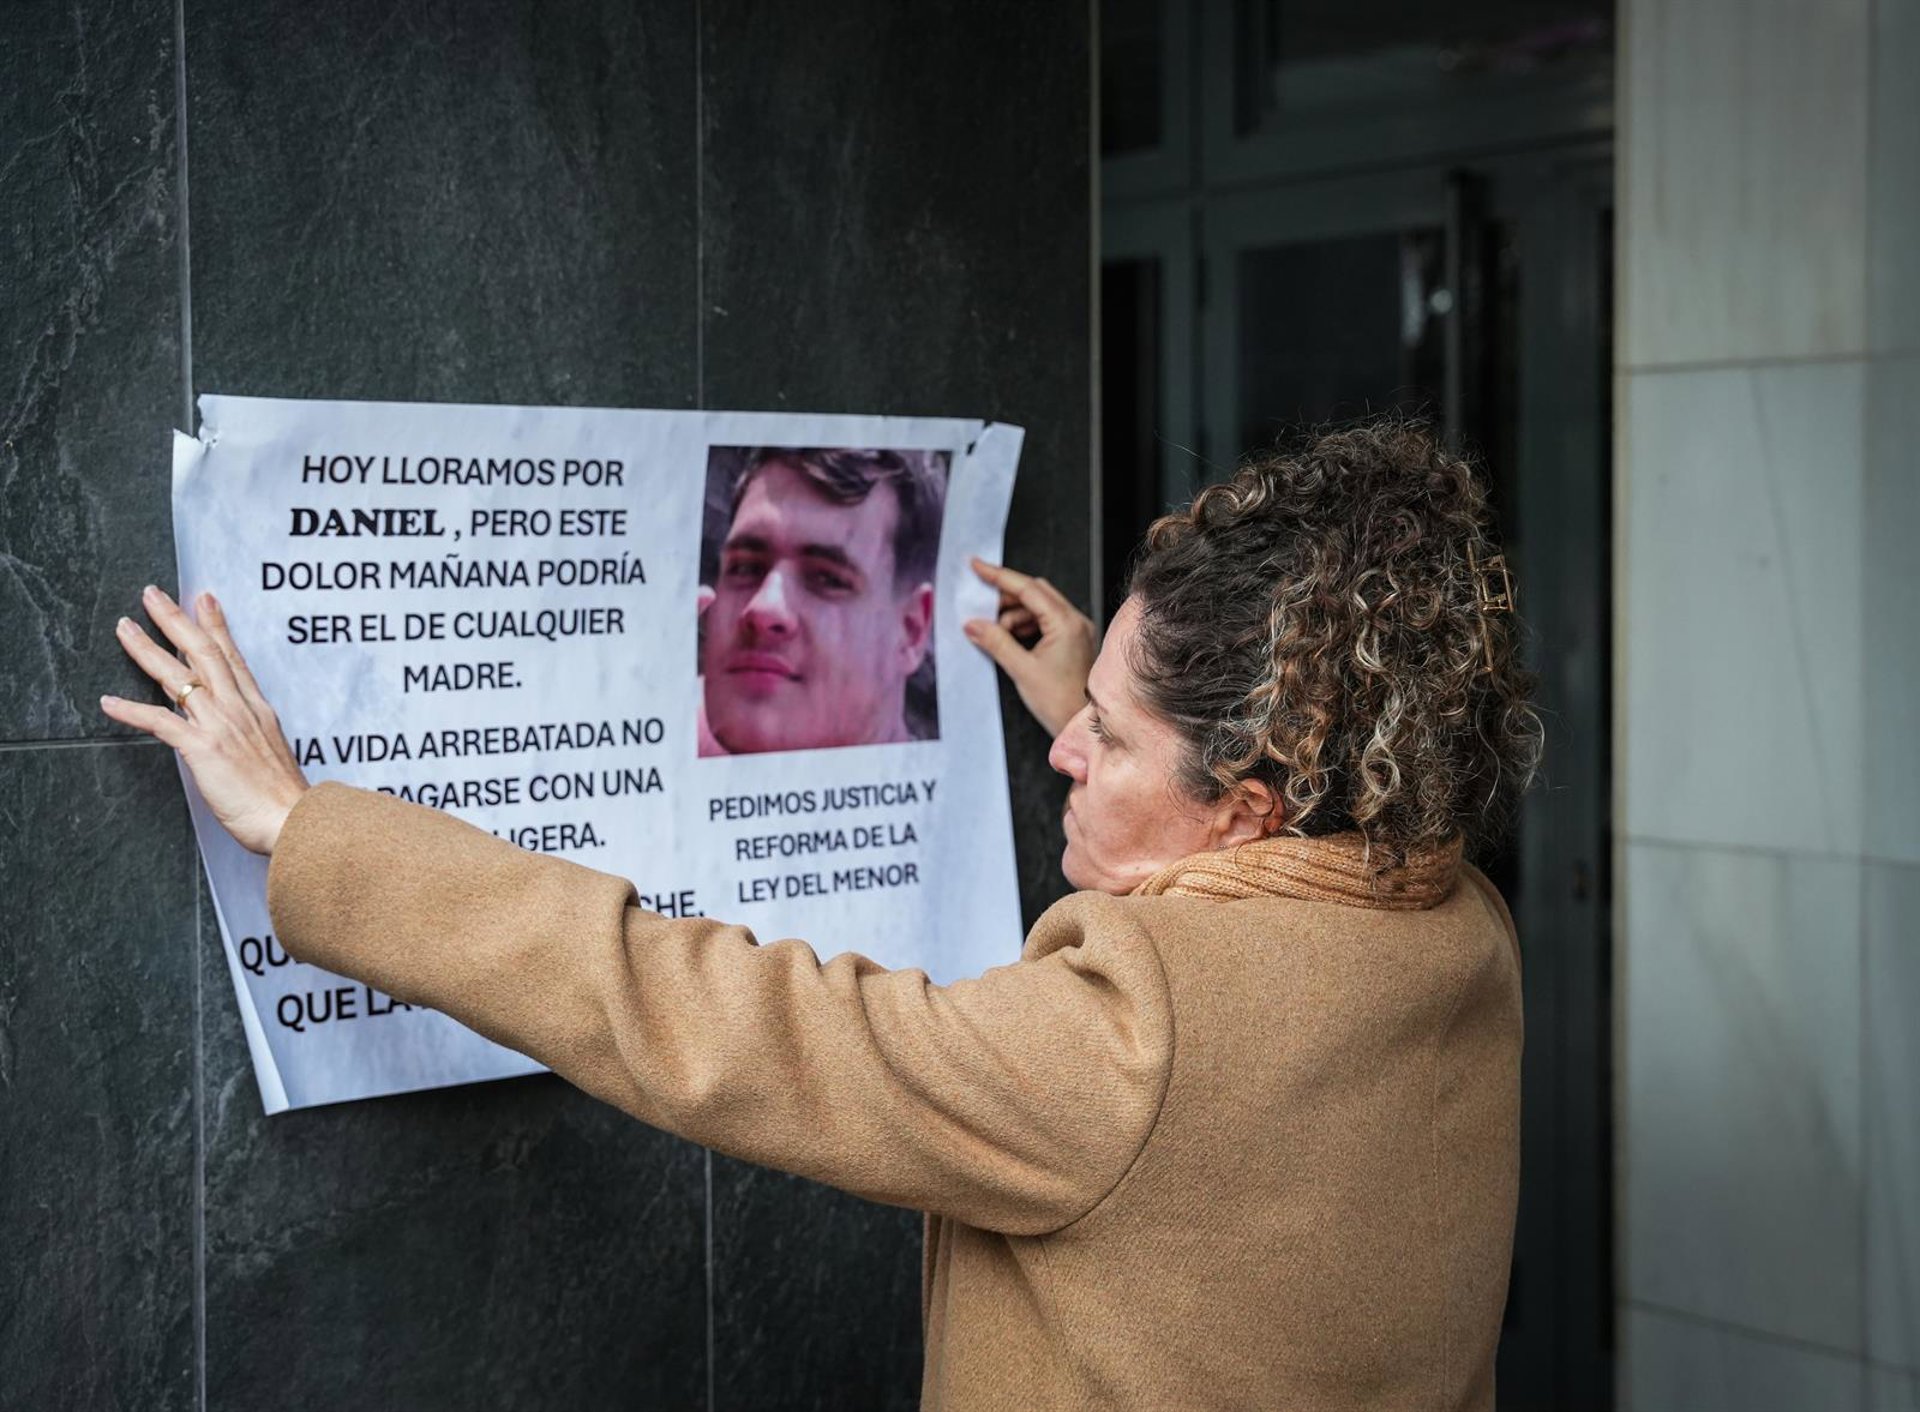 HOY LLORAMOS POR
DANIEL , PERO ESTE
DOLOR MAÑANA PODRÍA
SER EL DE CUALQUIER
MADRE.
VIDA ARREBATADA NO
PAGARSE CON UNA
LIGERA.
PEDIMOS JUSTICIA Y
REFORMA DE LA
LEY DEL MENOR
QUE